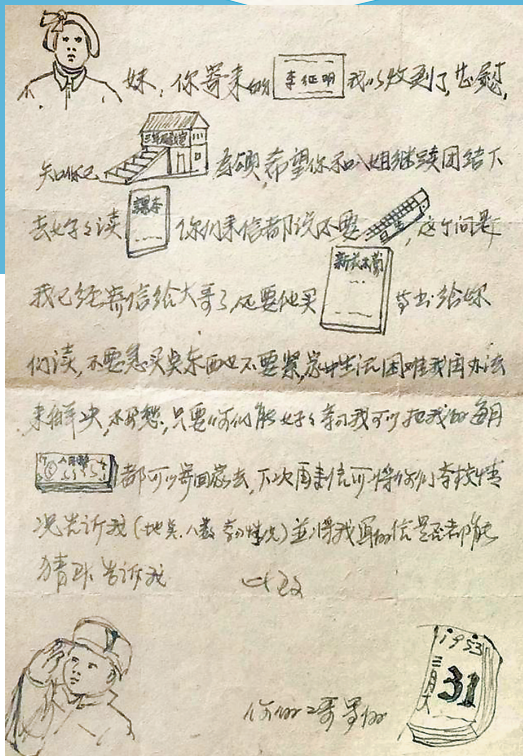 妹:你寄来的 李征明 我以收到了,甚慰,
知你已 三年级教室 希望你和八姐继续团结下
去好好读 课本 你们来信都说不要,这个问题
我已经寄信给大哥了,还要他买 新花木兰 等书给妹
们读,不要急买点东西也不要紧,家中生活困难我用办法
来解决,不发愁,只要你们能好好学习我可以把我的每月
都可以寄回家去,下次再来信可将你们学校情
况告诉我(地点、人数、学习情况)并将我写的信是否都能
猜到告诉我 此致
你的二哥
1953
三月大
31